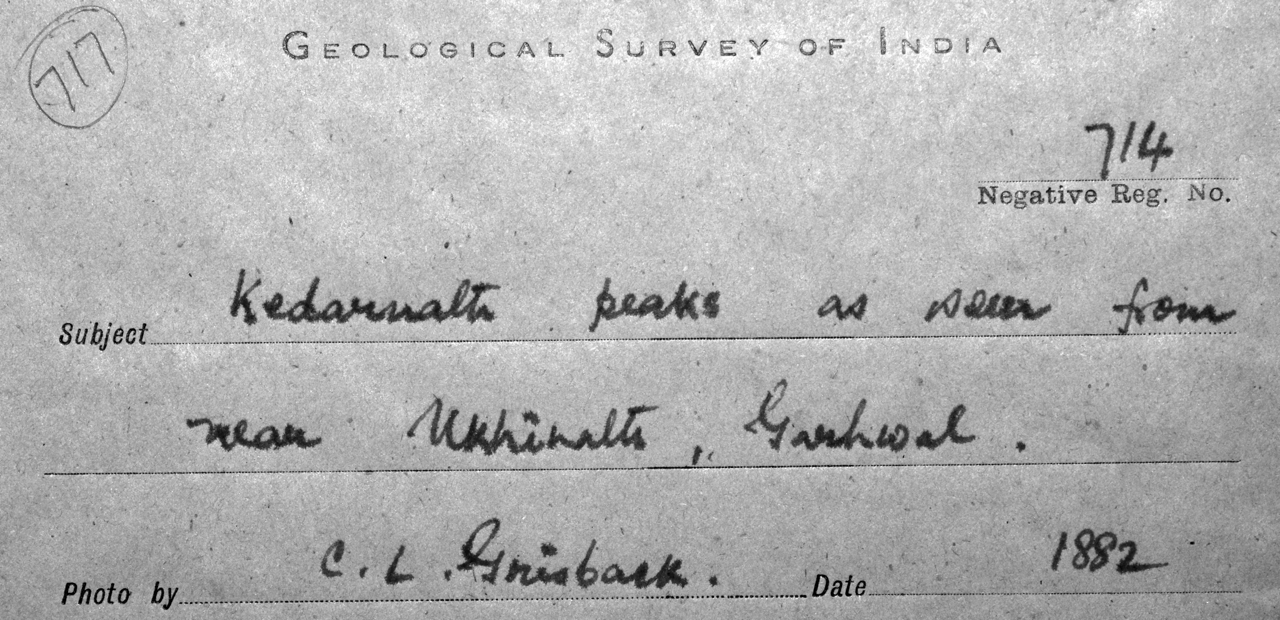 717
GEOLOGICAL SURVEY OF INDIA
714
Negative Reg. No.
Subject Kedarnath peaks as seen from
near Ukhinath, Garhwal.
Photo by C. L. Griesback. Date 1882